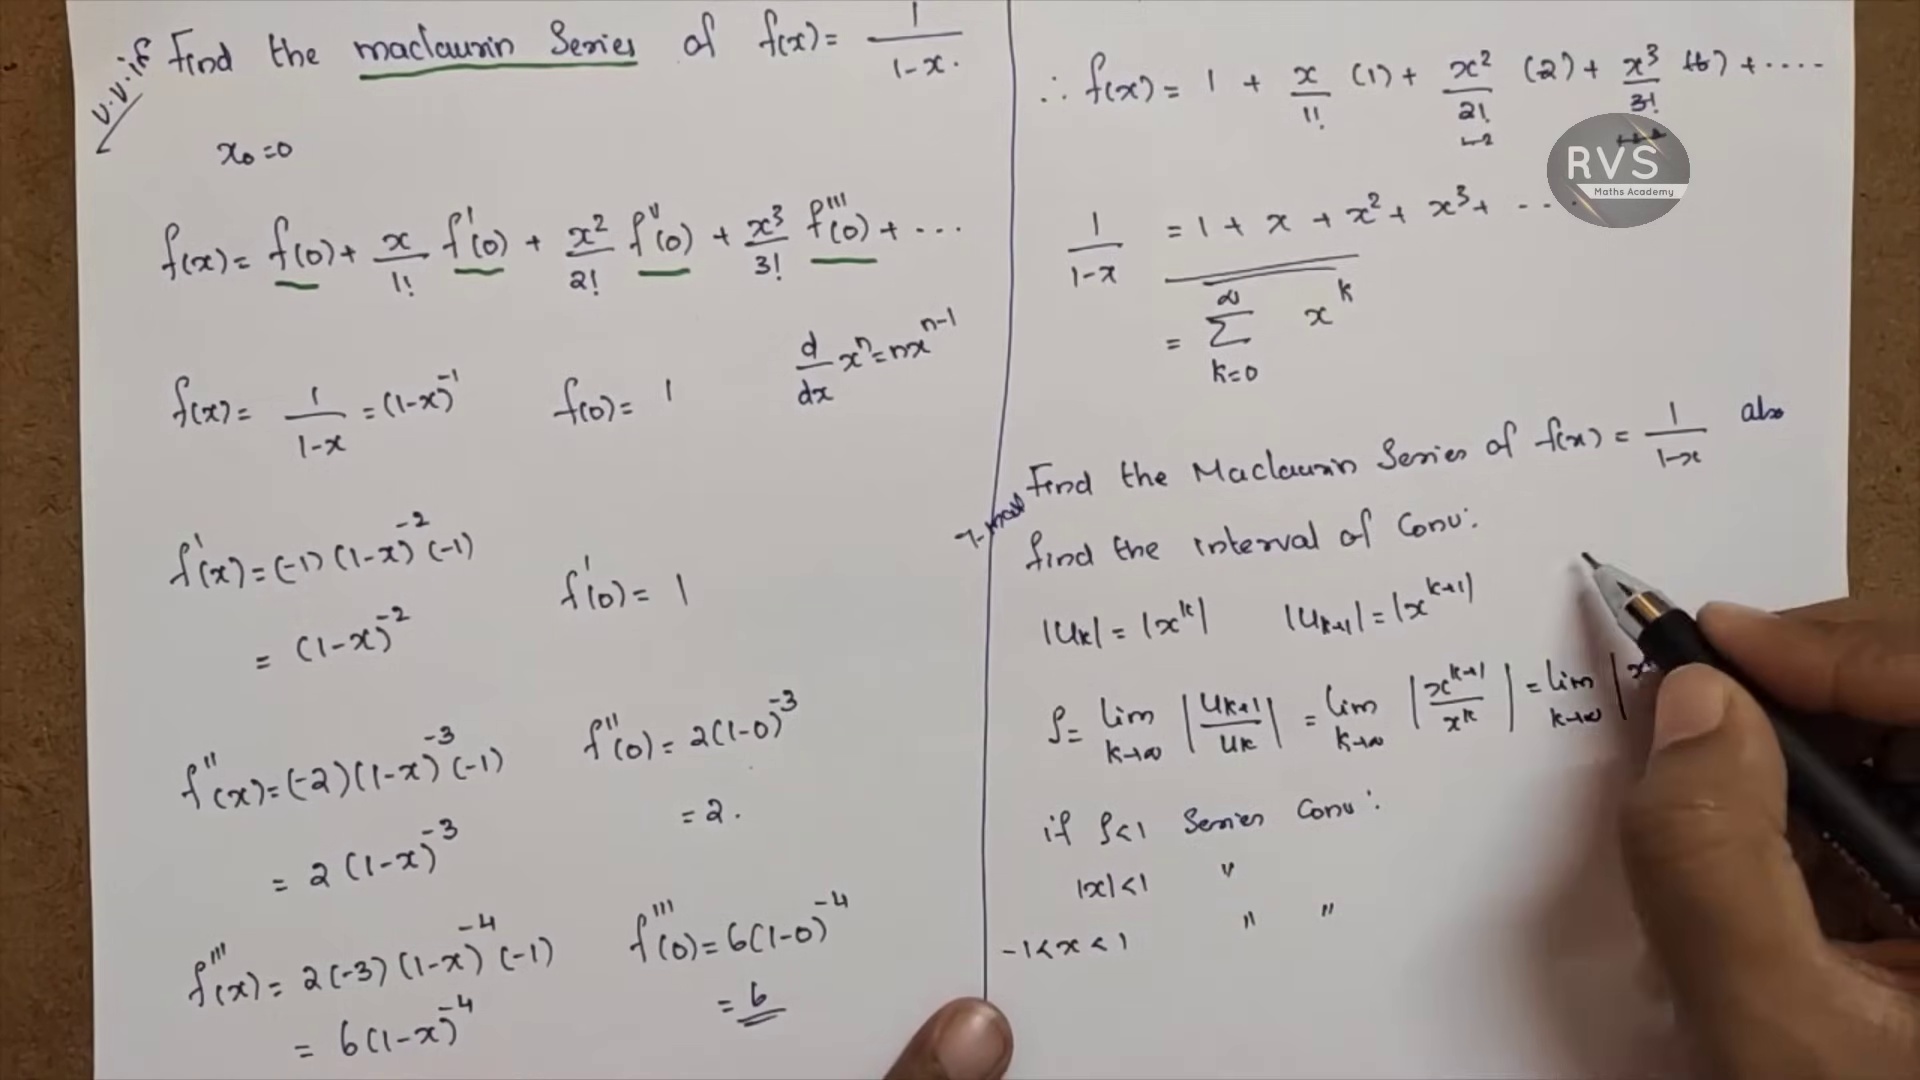 v.v.if Find the maclaurin Series of f(x) = 1/(1-x).
x₀=0
f(x) = f(0) + x/1! f'(0) + x²/2! f''(0) + x³/3! f'''(0) + ...
f(x) = 1/(1-x) = (1-x)⁻¹ f(0) = 1 d/dx xⁿ = nxⁿ⁻¹
f'(x) = (-1)(1-x)⁻²(-1) f'(0) = 1
= (1-x)⁻²
f''(x) = (-2)(1-x)⁻³(-1) f''(0) = 2(1-0)⁻³
= 2(1-x)⁻³ = 2.
f'''(x) = 2(-3)(1-x)⁻⁴(-1) f'''(0) = 6(1-0)⁻⁴
= 6(1-x)⁻⁴ = 6
∴ f(x) = 1 + x/1! (1) + x²/2! (2) + x³/3! (6) + ....
RVS
Maths Academy
1/(1-x) = 1 + x + x² + x³ + ...
= ∑_{k=0}^{∞} x^k
Find the Maclaurin Series of f(x) = 1/(1-x) also
find the interval of Conv:
|u_k| = |x^k| |u_{k+1}| = |x^{k+1}|
ρ = lim_{k→∞} |u_{k+1}/u_k| = lim_{k→∞} |x^{k+1}/x^k| = lim_{k→∞} |x
if ρ<1 Series Conv:
|x|<1 "
-1<x<1 " "